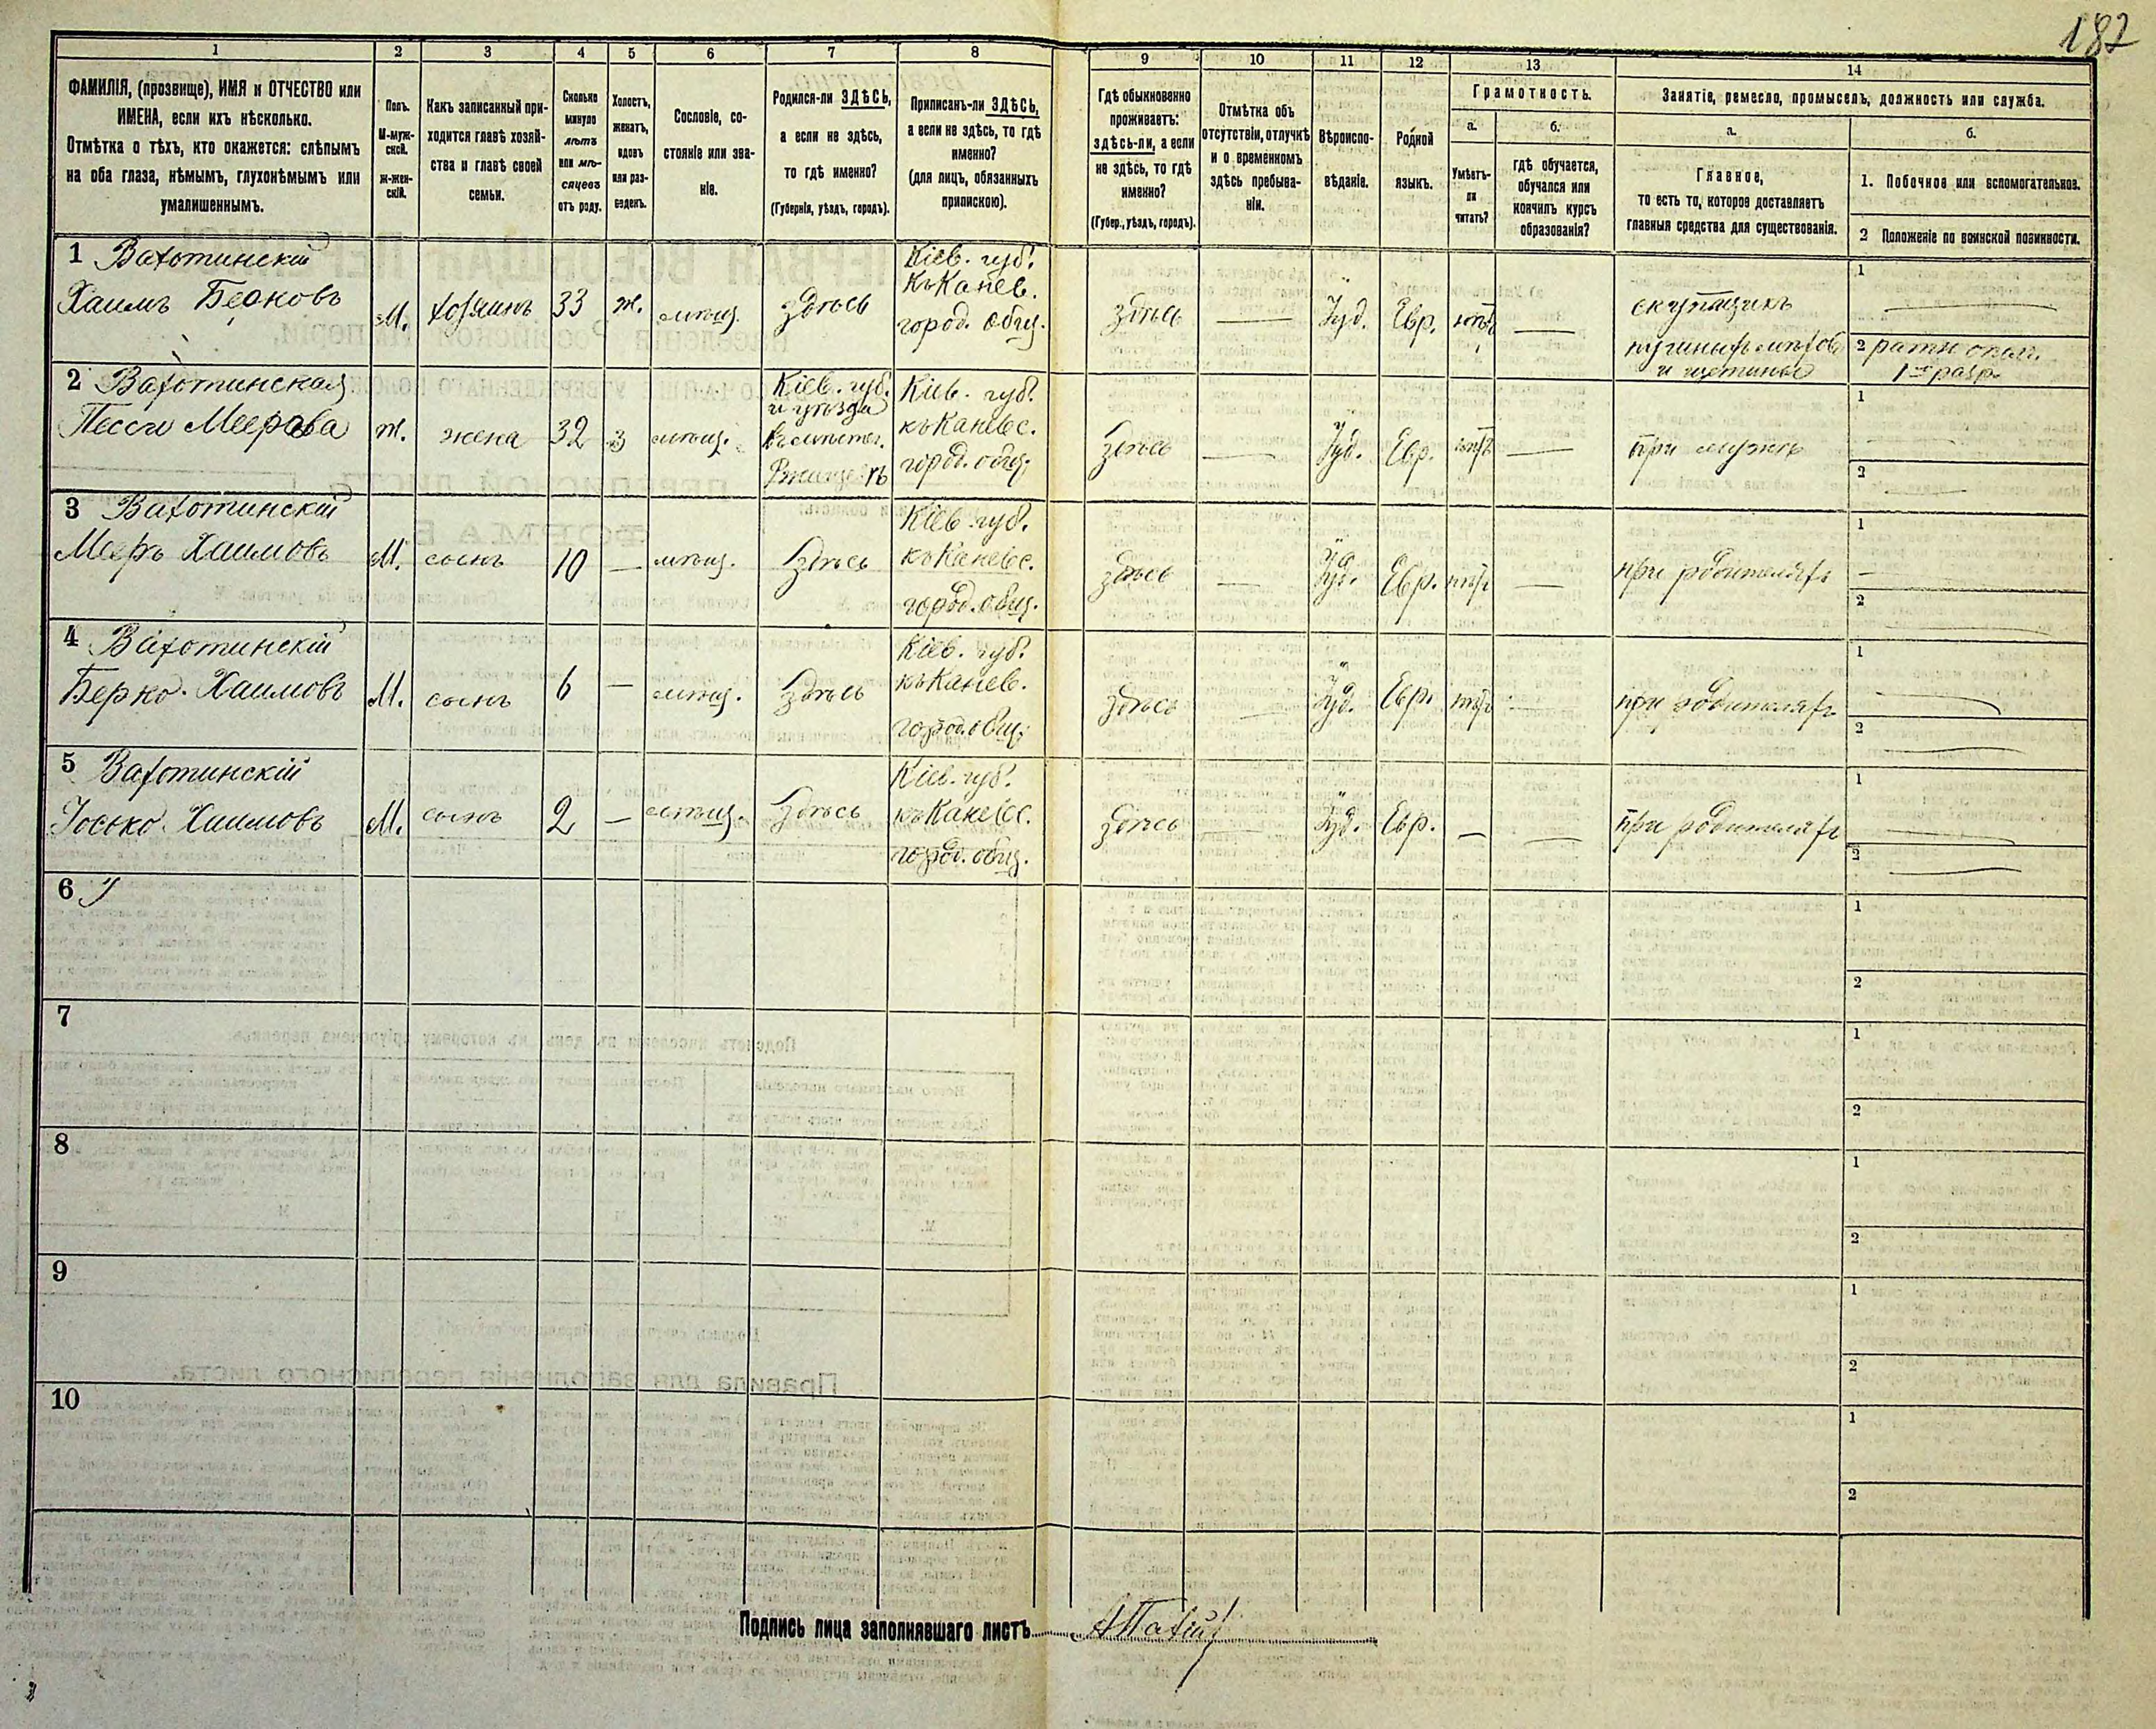 182
1
2
3
4
5
6
7
8
9
10
11
12
13
14
ФАМИЛІЯ, (прозвище), ИМЯ и ОТЧЕСТВО или
ИМЕНА, если ихъ нѣсколько.
Отмѣтка о тѣхъ, кто окажется: слѣпымъ
на оба глаза, нѣмымъ, глухонѣмымъ или
умалишеннымъ.
Полъ.
М-муж-
ской.
Ж-жен-
скій.
Какъ записанный при-
ходится главѣ хозяй-
ства и главѣ своей
семьи.
Сколько
минуло
лѣтъ
или мѣ-
сяцевъ
отъ роду.
Холостъ,
женатъ,
вдовъ
или раз-
веденъ.
Сословіе, со-
стояніе или зва-
ніе.
Родился-ли ЗДѢСЬ,
а если не здѣсь,
то гдѣ именно?
(Губернія, уѣздъ, городъ).
Приписанъ-ли ЗДѢСЬ,
а если не здѣсь, то гдѣ
именно?
(для лицъ, обязанныхъ
припискою).
Гдѣ обыкновенно
проживаетъ:
здѣсь-ли, а если
не здѣсь, то гдѣ
именно?
(Губер., уѣздъ, городъ).
Отмѣтка объ
отсутствіи, отлучкѣ
и о временномъ
здѣсь пребыва-
ніи.
Вѣроиспо-
вѣданіе.
Родной
языкъ.
Грамотность.
а.
Умѣетъ-
ли
читать?
б.
гдѣ обучается,
обучался или
кончилъ курсъ
образованія?
Занятіе, ремесло, промыселъ, должность или служба.
а.
Главное,
то есть то, которое доставляетъ
главныя средства для существованія.
б.
1. Побочное или вспомогательное.
2 Положеніе по воинской повинности.
1 Вахотинскій
Хаимъ Берковъ
М.
хозяинъ
33
ж.
мѣщ.
здѣсь
Кіев. губ.
къ Канев.
город. общ.
здѣсь
Іуд.
Евр.
скупщикъ
и щетины
1
2 ратн. опол.
1го разр.
2 Вахотинская
Песси Меерова
ж.
жена
32
з
мѣщ.
Кіев. губ.
и уѣзда
Ржищевъ
Кіев. губ.
къ Каневс.
город. общ.
здѣсь
Іуд.
Евр.
при мужѣ
1
2
3 Вахотинскій
Мееръ Хаимовъ
М.
сынъ
10
—
мѣщ.
здѣсь
Кіев. губ.
къ Каневс.
город. общ.
здѣсь
—
Іуд.
Евр.
—
при родителяхъ
1
2
4 Вахотинскій
Берко Хаимовъ
М.
сынъ
6
—
мѣщ.
здѣсь
Кіев. губ.
къ Канев.
город. общ.
здѣсь
—
Іуд.
Евр.
при родителяхъ
1
2
5 Вахотинскій
Іосько Хаимовъ
М.
сынъ
2
—
мѣщ.
здѣсь
Кіев. губ.
къ Каневс.
город. общ.
здѣсь
—
Іуд.
Евр.
—
—
при родителяхъ
1
2
6
1
2
7
1
2
8
1
2
9
1
2
10
1
2
Подпись лица заполнявшаго листъ